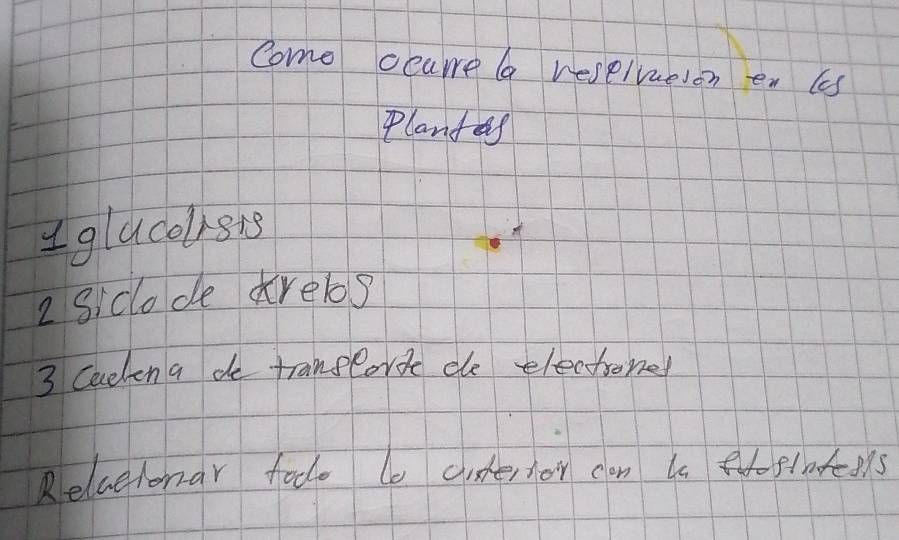 Como ocurre la respiracion en las
Plantas
1 glucolisis
2 Siclo de krebs
3 Cadena de transporte de electrones
Relacionar todo lo anterior con la fotosintesis